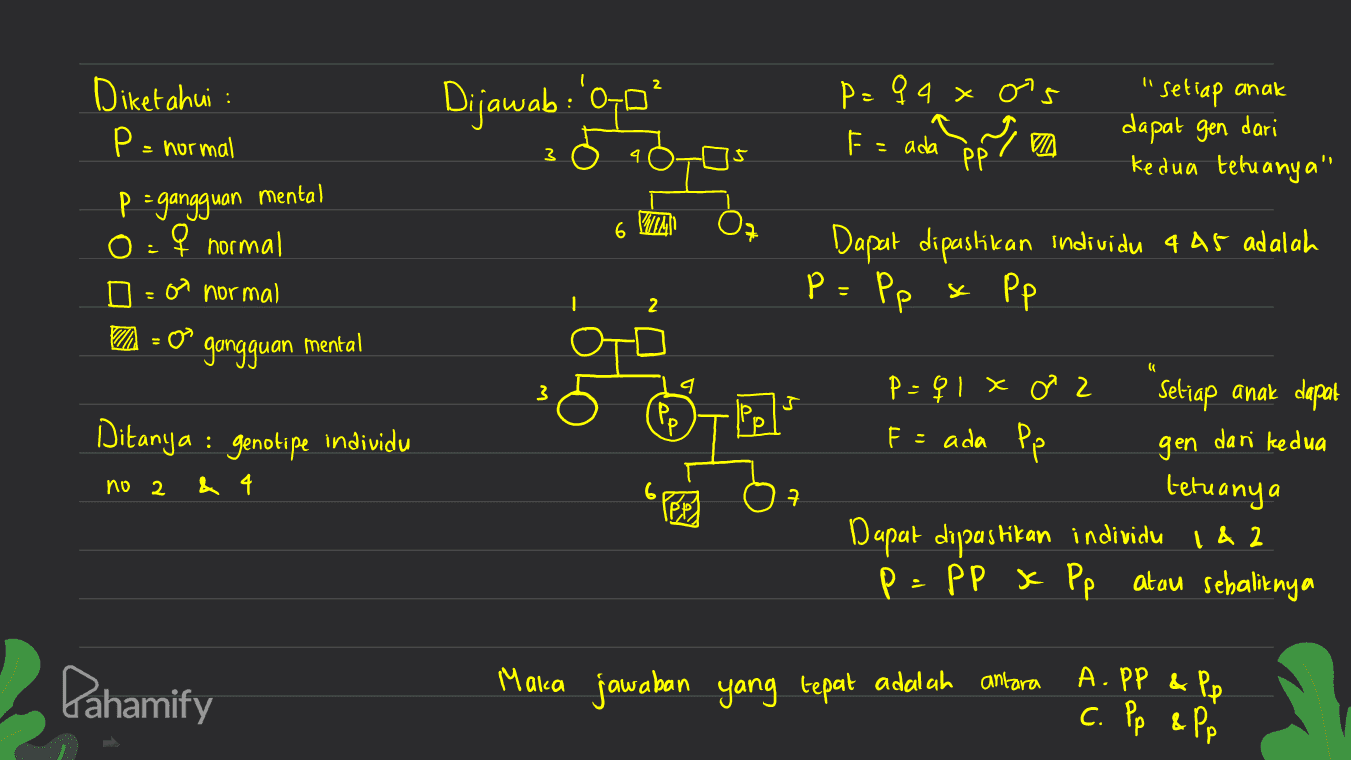 Diketahui :
P = normal
p = gangguan mental
O = ♀ normal
□ = ♂ normal
▨ = ♂ gangguan mental
Ditanya : genotipe individu
no 2 & 4
Dijawab :
1 2
3 4 5
6 7
1 2
3 4 5
Pp Pp
6 7
pp
P = ♀ 4 x ♂ 5
F = ada pp / ▨
"setiap anak
dapat gen dari
kedua tetuanya"
Dapat dipastikan individu 4 & 5 adalah
P = Pp x Pp
P = ♀ 1 x ♂ 2
F = ada Pp
"Setiap anak dapat
gen dari kedua
tetuanya
Dapat dipastikan individu 1 & 2
P = PP x Pp atau sebaliknya
Maka jawaban yang tepat adalah antara A. PP & Pp
C. Pp & Pp
Pahamify